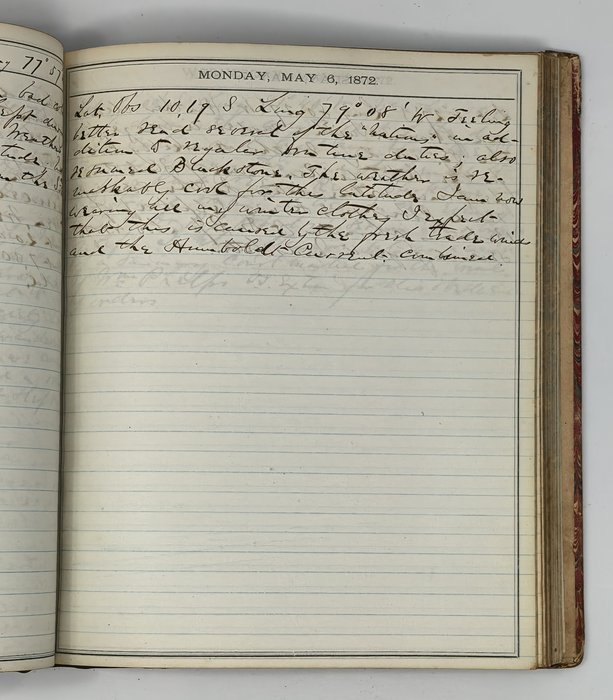 MONDAY, MAY 6, 1872.
Lat. Obs 10,19 S Long 79° 08' W Feeling
better read several of the "Nations" in ad-
dition to regular routine duties, also
resumed Blackstone. The weather is re-
markably cool for this latitude I am now
wearing all my winter clothes, I expect
that this is caused by the fresh trade winds
and the Humboldt Current combined.